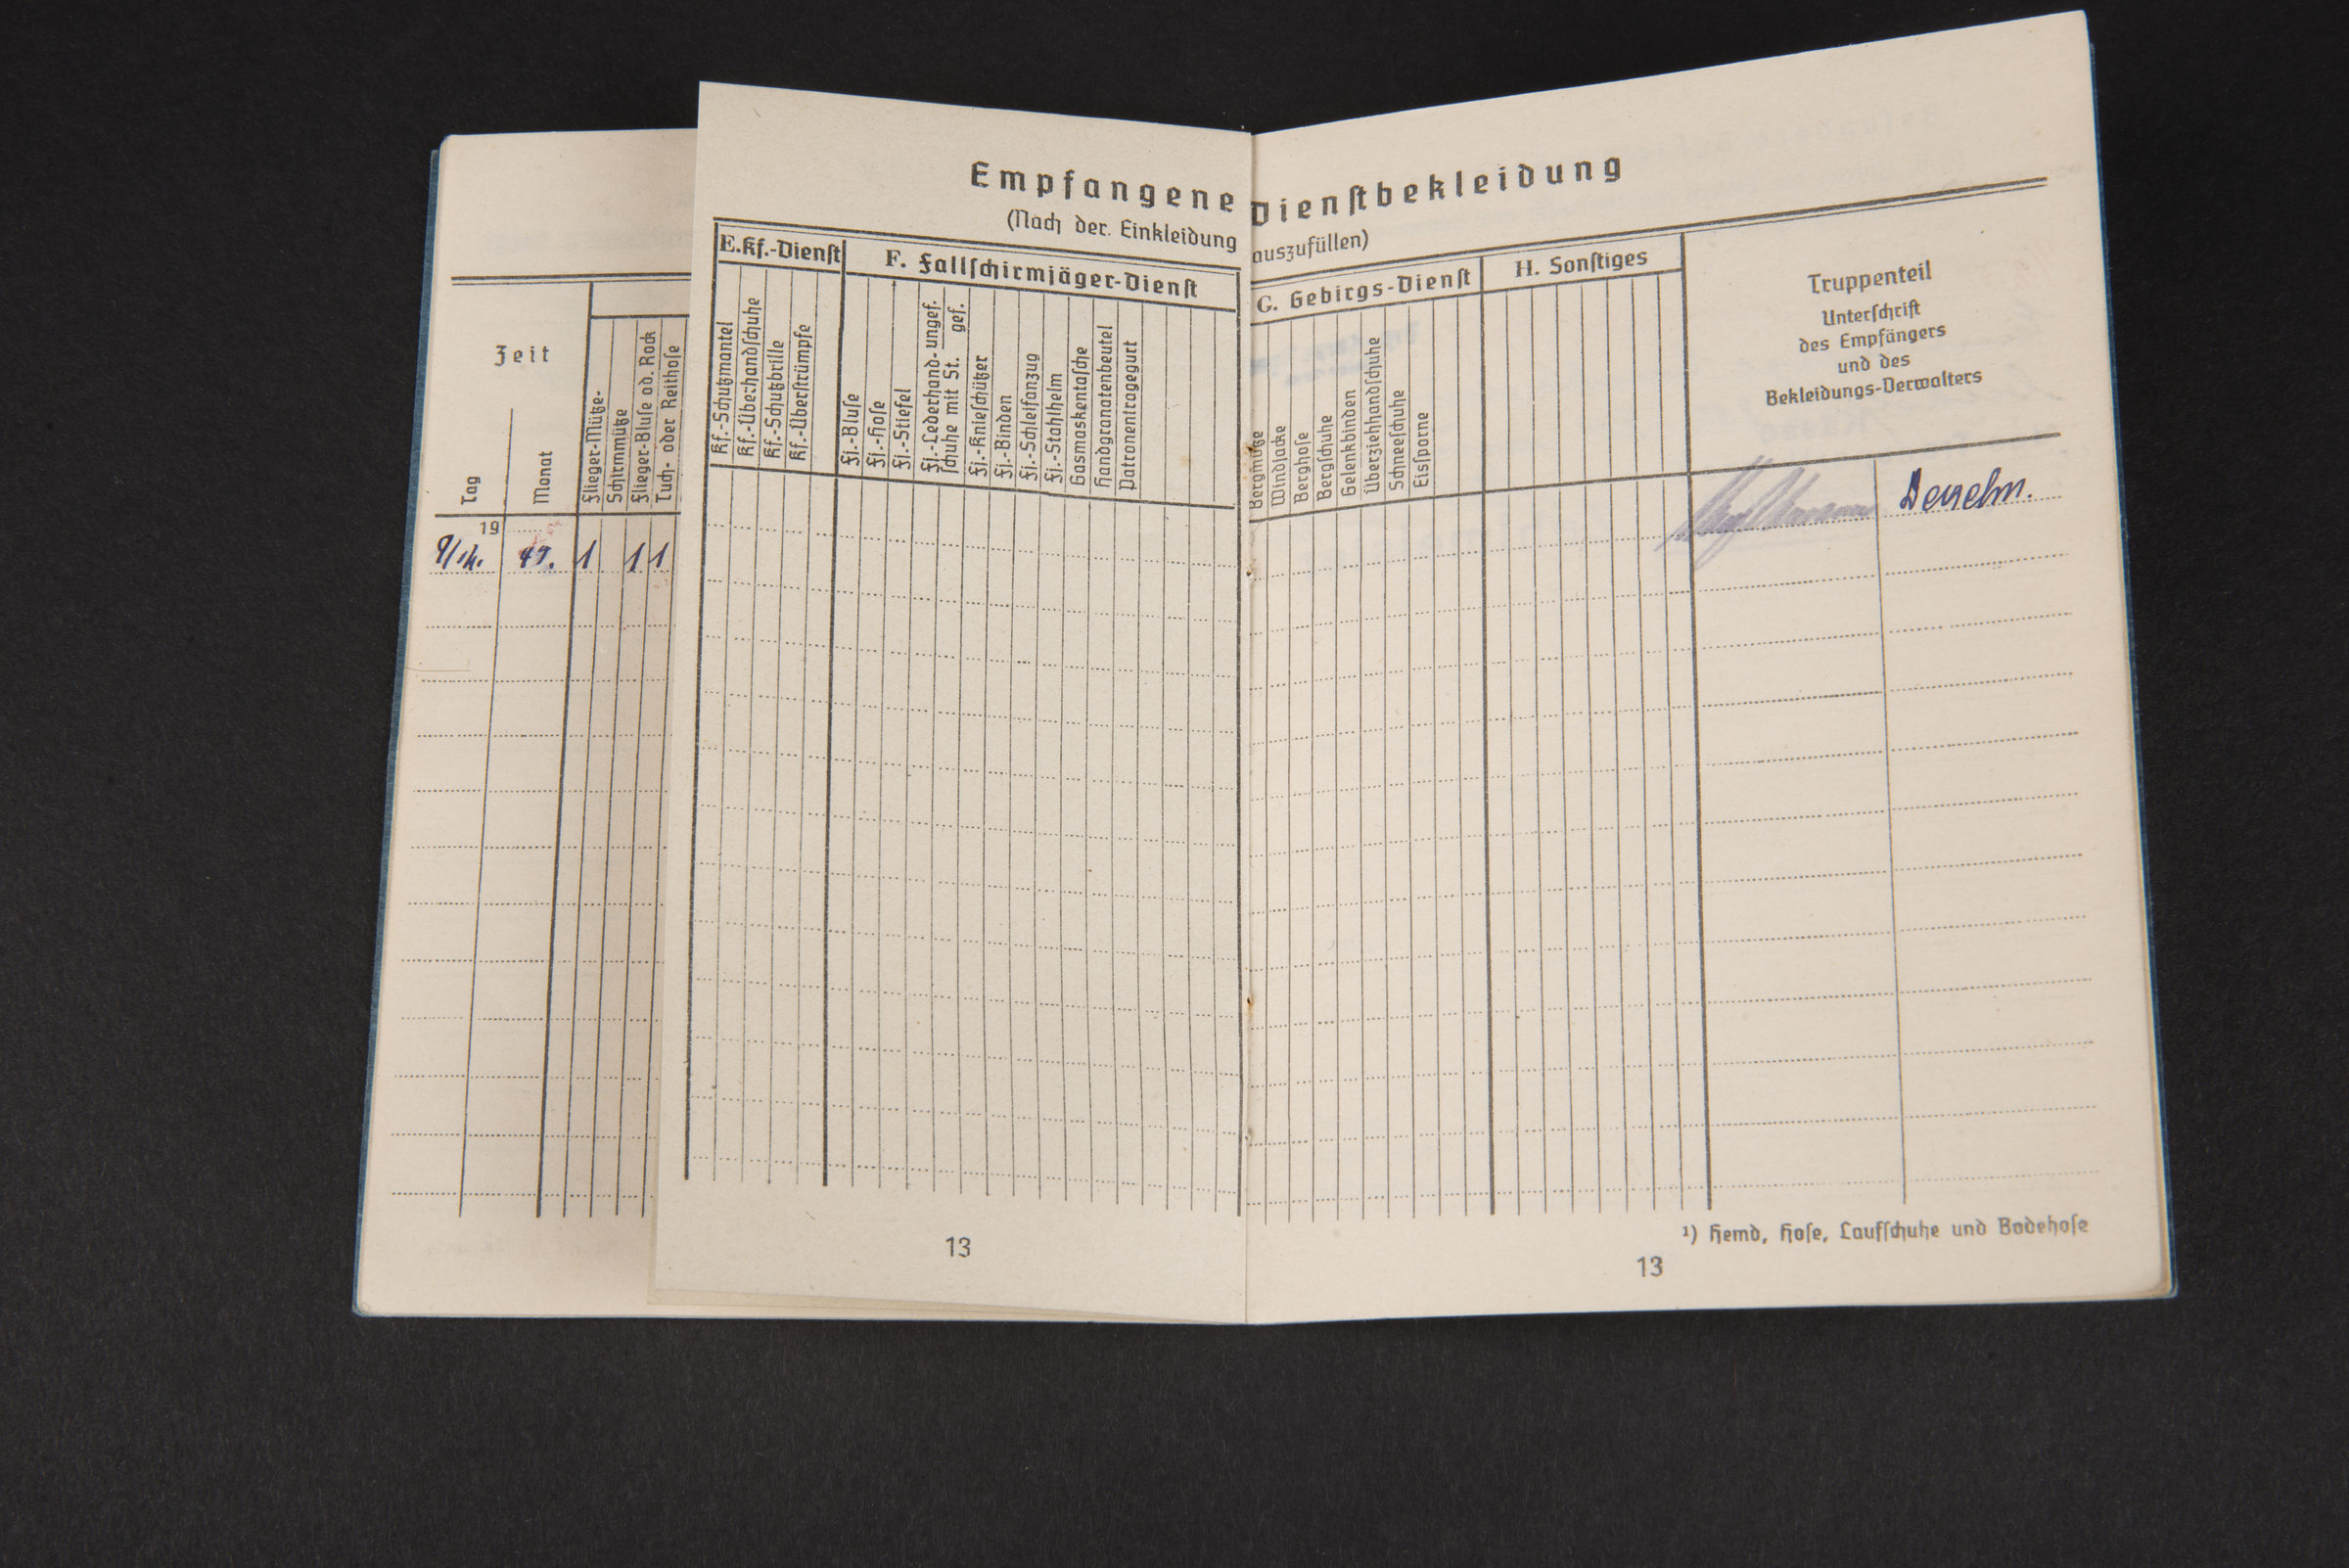 Empfangene Dienstbekleidung
(Nach der Einkleidung auszufüllen)
Zeit
Tag
Monat
Flieger-Mütze-
Schirmmütze
Flieger-Bluse od. Rock
Tuch- oder Reithose
E. Kf.-Dienst
Kf.-Schutzmantel
Kf.-Überhandschuhe
Kf.-Schutzbrille
Kf.-Überstrümpfe
F. Fallschirmjäger-Dienst
Fj.-Bluse
Fj.-Hose
Fj.-Stiefel
Fj.-Lederhand- ungef.
schuhe mit St. gef.
Fj.-Knieschützer
Fj.-Binden
Fj.-Schleifanzug
Fj.-Stahlhelm
Gasmaskentasche
Handgranatenbeutel
Patronentragegurt
G. Gebirgs-Dienst
Bergmütze
Windjacke
Berghose
Bergschuhe
Gelenkbinden
Überziehhandschuhe
Schneeschuhe
Eissporne
H. Sonstiges
Truppenteil
Unterschrift
des Empfängers
und des
Bekleidungs-Verwalters
19
1 1 1
13
¹) Hemd, Hose, Laufschuhe und Badehose
13